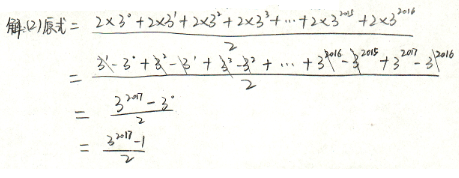 解:(2)原式 = (2×3⁰+2×3¹+2×3²+2×3³+…+2×3²⁰¹⁵+2×3²⁰¹⁶)/2
= (3¹-3⁰+3²-3¹+3³-3²+…+3²⁰¹⁶-3²⁰¹⁵+3²⁰¹⁷-3²⁰¹⁶)/2
= (3²⁰¹⁷-3⁰)/2
= (3²⁰¹⁷-1)/2